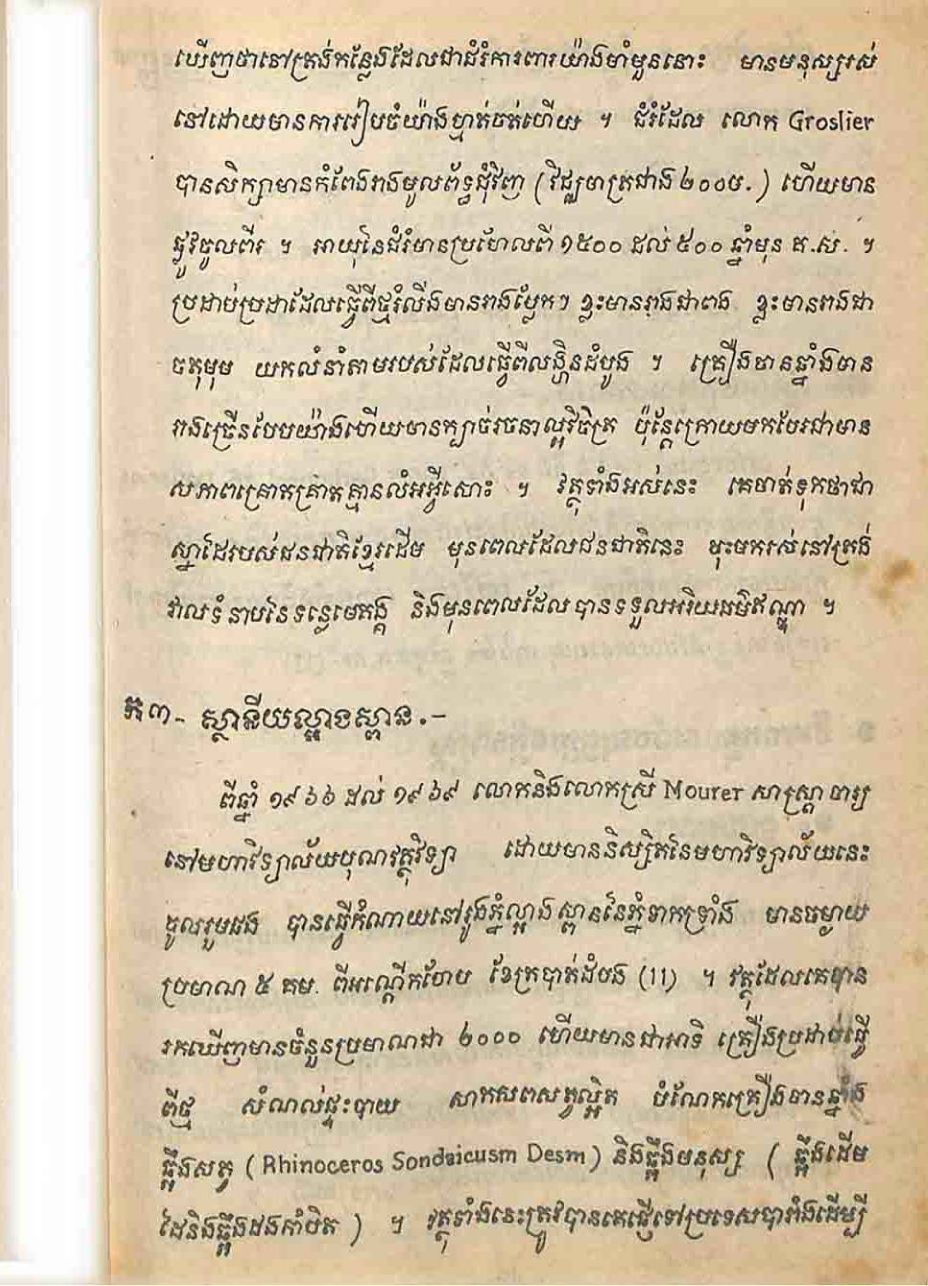 ឃើញថានៅត្រង់កន្លែងដែលជាជំរំការពារយ៉ាងមាំមួននោះ មានមនុស្សរស់
នៅដោយមានការរៀបចំយ៉ាងហ្មត់ចត់ហើយ ។ ជំរំដែល លោក Groslier
បានសិក្សាមានកំពែងរាងមូលព័ទ្ធជុំវិញ (វិជ្ឈមាត្រជាង ២០០ម.) ហើយមាន
ផ្លូវចូលពីរ ។ អាយុនៃជំរំមានប្រហែលពី ១៥០០ ដល់ ៥០០ ឆ្នាំមុន គ.ស. ។
ប្រដាប់ប្រដាដែលធ្វើពីថ្មរំលីងមានរាងប្លែកៗ ខ្លះមានរាងជាពង ខ្លះមានរាងជា
ចតុមុម យកលំនាំតាមរបស់ដែលធ្វើពីលង្ហិនដំបូង ។ គ្រឿងចានឆ្នាំងមាន
រាងច្រើនបែបយ៉ាងហើយមានក្បាច់រចនាល្អវិចិត្រ ប៉ុន្តែក្រោយមកបែរជាមាន
សភាពគ្រោតគ្រាតគ្មានលំអអ្វីសោះ ។ វត្ថុទាំងអស់នេះ គេចាត់ទុកថាជា
ស្នាដៃរបស់ជនជាតិខ្មែរដើម មុនពេលដែលជនជាតិនេះ ចុះមករស់នៅត្រង់
វាលទំនាបនៃទន្លេមេគង្គ និងមុនពេលដែលបានទទួលអរិយធម៌ឥណ្ឌា ។
គ៣- ស្ថានីយល្អាងស្ពាន.-
ពីឆ្នាំ ១៩៦៦ ដល់ ១៩៦៩ លោកនិងលោកស្រី Mourer សាស្ត្រាចារ្យ
នៅមហាវិទ្យាល័យបុណវត្ថុវិទ្យា ដោយមាននិស្សិតនៃមហាវិទ្យាល័យនេះ
ចូលរួមផង បានធ្វើកំណាយនៅរូងភ្នំល្អាងស្ពាននៃភ្នំទាកទ្រាំង មានចម្ងាយ
ប្រមាណ ៥ គម. ពីអណ្តើកហែប ខែត្របាត់ដំបង (11) ។ វត្ថុដែលគេបាន
រកឃើញមានចំនួនប្រមាណជា ២០០០ ហើយមានជាអាទិ គ្រឿងប្រដាប់ធ្វើ
ពីថ្ម សំណល់ផ្ទះបាយ សាកសពសត្វល្អិត បំណែកគ្រឿងចានឆ្នាំង
ឆ្អឹងសត្វ ( Rhinoceros Sondaicusm Desm ) និងឆ្អឹងមនុស្ស ( ឆ្អឹងដើម
ដៃនិងឆ្អឹងដងកាំបិត ) ។ វត្ថុទាំងនេះត្រូវបានគេផ្ញើទៅប្រទេសបារាំងដើម្បី